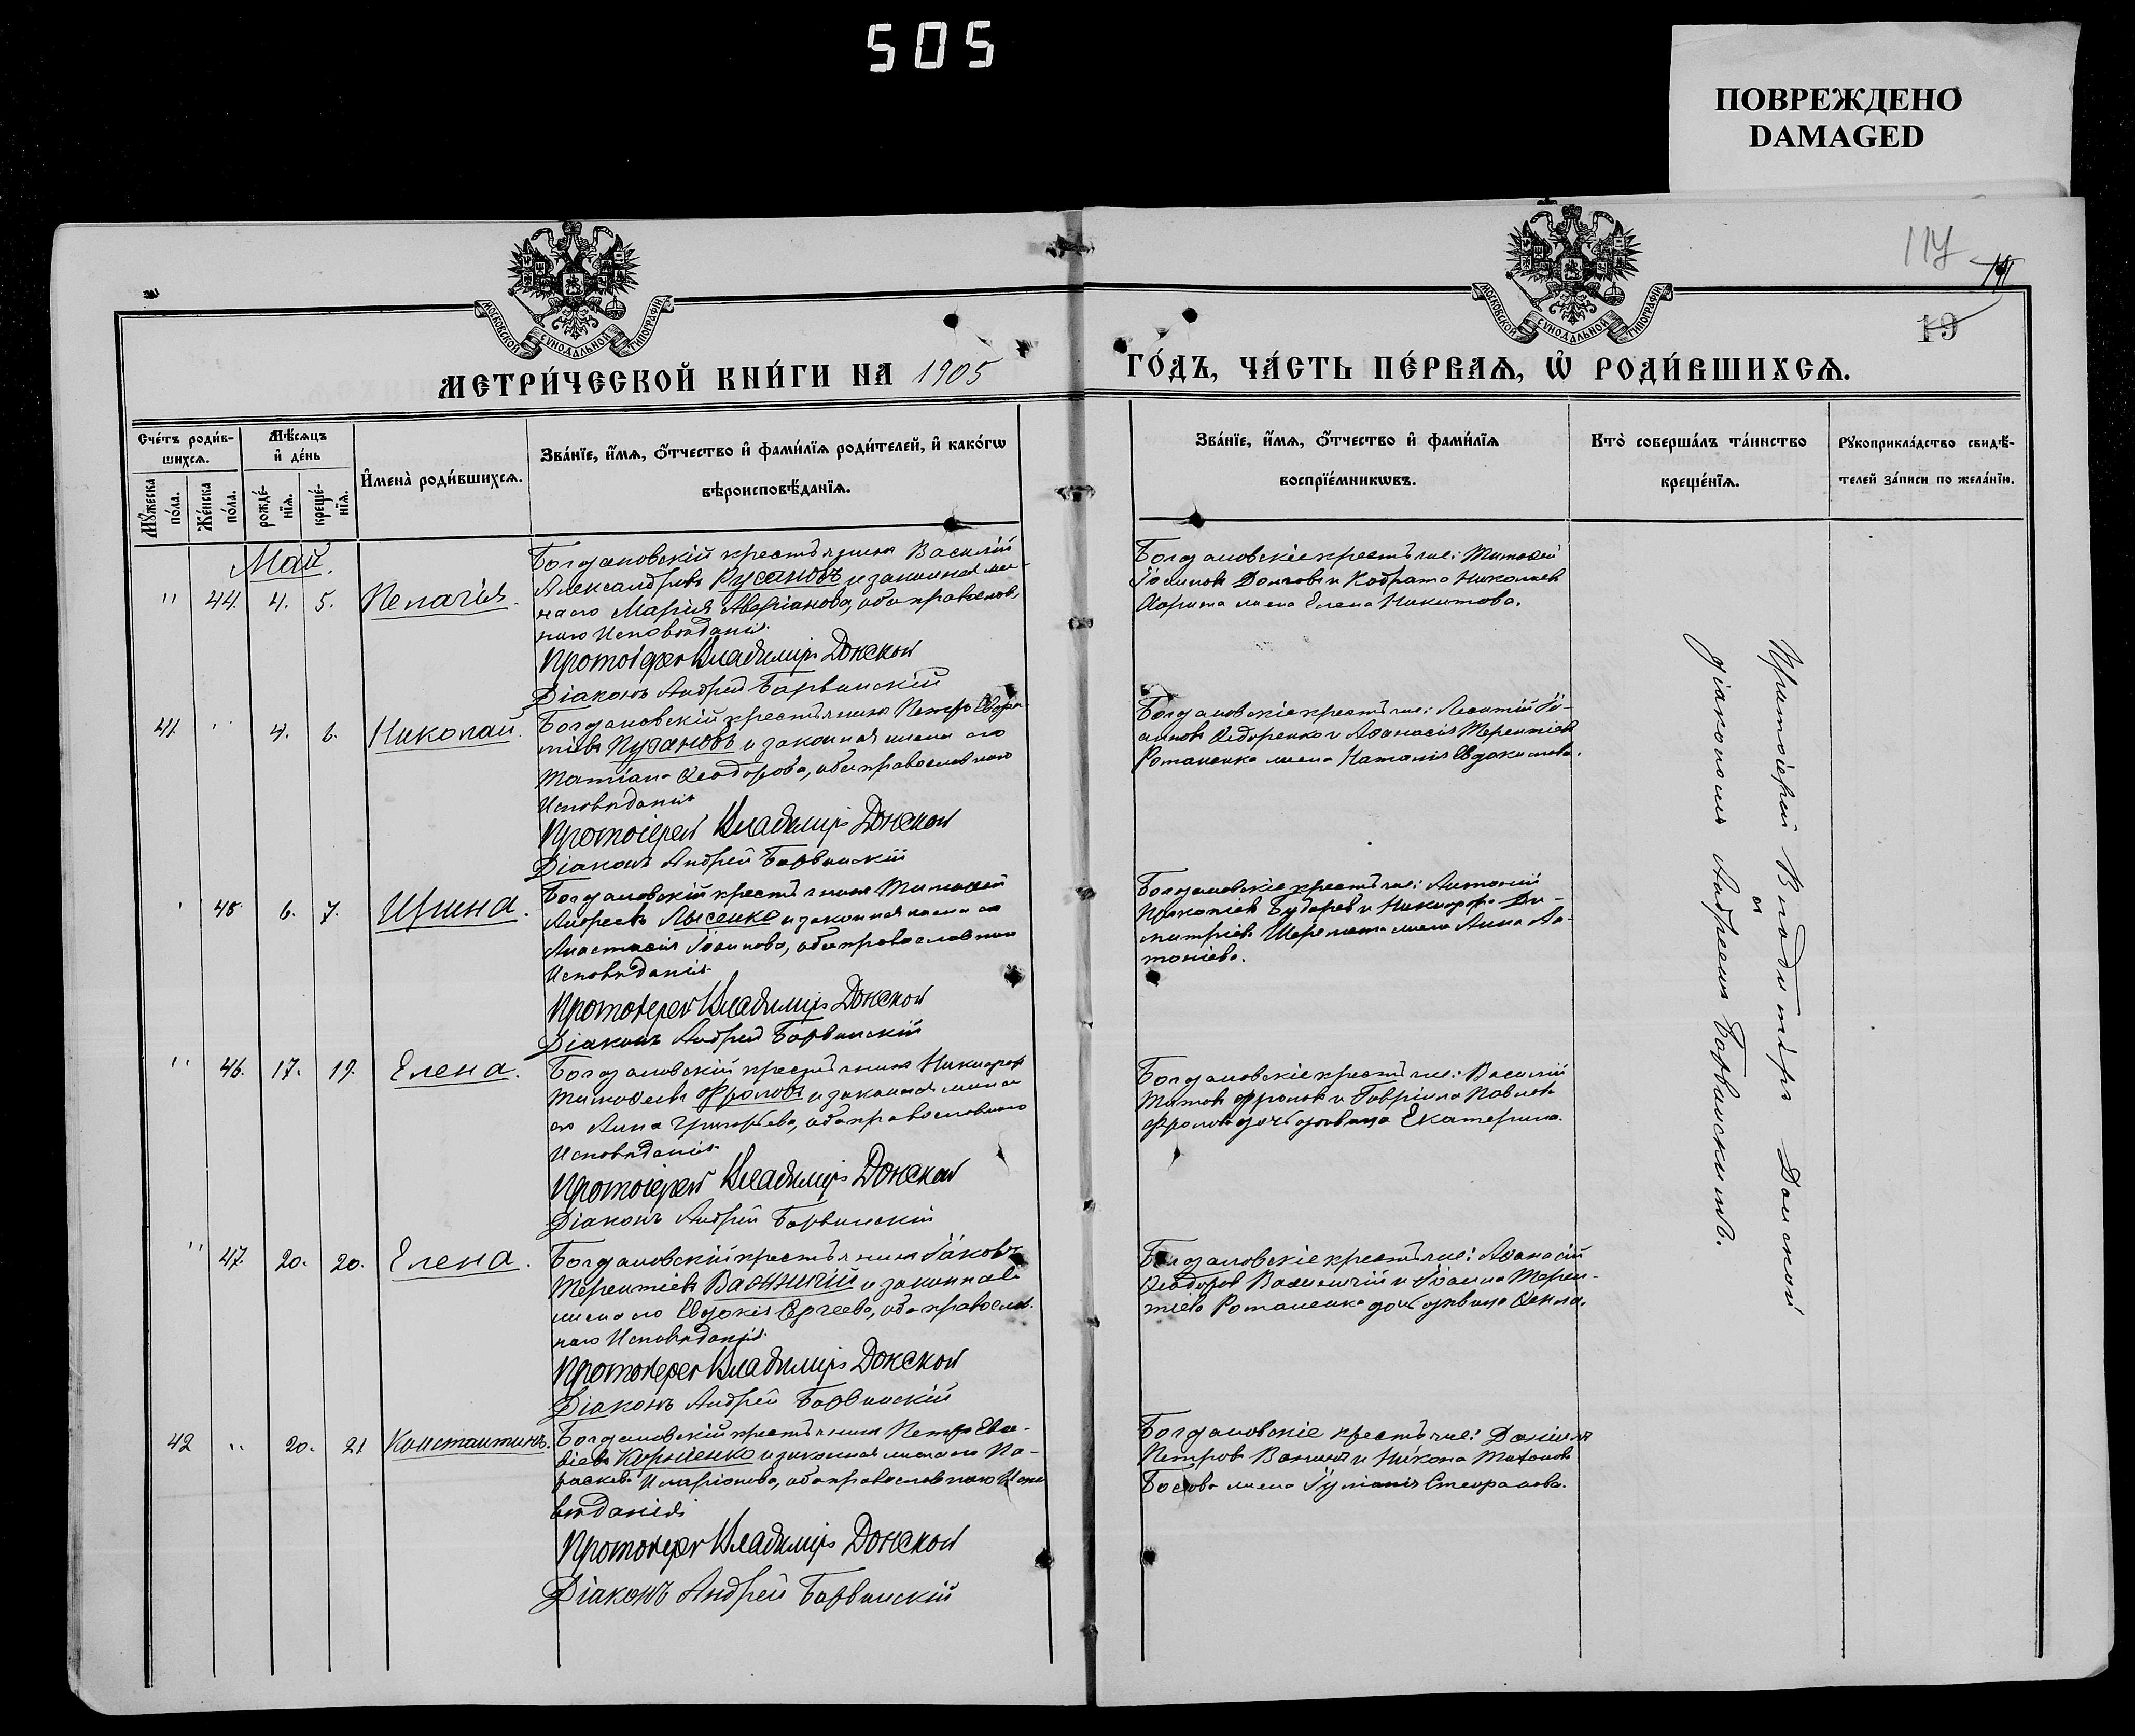 505
ПОВРЕЖДЕНО
DAMAGED
117
19
МОСКОВСКОЙ СѴНОДАЛЬНОЙ ТИПОГРАФІИ
МОСКОВСКОЙ СѴНОДАЛЬНОЙ ТИПОГРАФІИ
МЕТРИ́ЧЕСКОЙ КНИ́ГИ НА 1905 ГО́ДЪ, ЧА́СТЬ ПЕ́РВАѦ, Ѡ҆ РОДИ́ВШИХСѦ.
Сче́тъ роди́в-
шихсѧ.
Мꙋ́жеска по́ла.
Же́нска по́ла.
Мѣ́сѧцъ и҆ де́нь
рожде́-
нїѧ.
креще́-
нїѧ.
И҆мена̀ роди́вшихсѧ.
Зва́нїе, и҆́мѧ, ѻ҆́тчество и҆ фами́лїѧ роди́телей, и҆ како́гѡ
вѣроисповѣ́данїѧ.
Зва́нїе, и҆́мѧ, ѻ҆́тчество и҆ фами́лїѧ
воспрїе́мникѡвъ.
Кто̀ соверша́лъ та́инство
креще́нїѧ.
Рꙋкоприкла́дство свидѣ́-
телей за́писи по жела́нїю.
Май.
" 44. 4. 5. Пелагія.
Богдановскій крестьянинъ Василій
Александровъ Русановъ и законная же-
на его Марія Аверіанова, оба православ
наго Исповѣданія.
Протоіерей Владимiръ Донской
Діаконъ Андрей Барвинскій
Богдановскіе крестьяне: Тимоѳей
Іоанновъ Долговъ и Кодрата Николаева
жена Елена Никитова.
41. " 4. 6. Николай.
Богдановскій крестьянинъ Петръ
Пугановъ и законная жена его
Татіана Ѳеодорова, оба православнаго
Исповѣданія
Протоіерей Владимiръ Донской
Діаконъ Андрей Барвинскій
Богдановскіе крестьяне: Леонтій Іо-
анновъ Ѳедоренко и Аѳанасія Терентіева
Романенка жена Наталія Евдокимова.
" 45. 6. 7. Ирина.
Богдановскій крестьянинъ Тимоѳей
Андреевъ Лысенко и законная жена его
Анастасія Іоаннова, оба православнаго
Исповѣданія
Протоіерей Владимiръ Донской
Діаконъ Андрей Барвинскій
Богдановскіе крестьяне: Антоній
Прокопіевъ и Никифора Ди-
митріева Шеремета жена Анна Ан-
тоніева.
" 46. 17. 19. Елена.
Богдановскій крестьянинъ Никифоръ
Тимоѳеевъ Фроловъ и законная жена
его Анна Григорьева, оба православнаго
Исповѣданія
Протоіерей Владимiръ Донской
Діаконъ Андрей Барвинскій
Богдановскіе крестьяне: Василій
Титовъ Фроловъ и Гавріила Павлова
Фролова дочь дѣвица Екатерина.
" 47. 20. 20. Елена.
Богдановскій крестьянинъ Іаковъ
Терентіевъ и законная
жена его Евдокія Сергеева, оба православ-
наго Исповѣданія.
Протоіерей Владимiръ Донской
Діаконъ Андрей Барвинскій
Богдановскіе крестьяне: Аѳанасій
Ѳеодоровъ и Іоанна Терен-
тіева Романенка дочь дѣвица Ѳекла.
42 " 20. 21 Константинъ.
Богдановскій крестьянинъ Петръ
Корніенко и законная жена его Па-
раскева Иларіонова, оба православнаго Испо
вѣданія
Протоіерей Владимiръ Донской
Діаконъ Андрей Барвинскій
Богдановскіе крестьяне: Даніилъ
Петровъ и Никона
жена Іуліанія Стефанова.
Протоіерей Владиміръ Донской
съ
діакономъ Андреемъ Барвинскимъ.